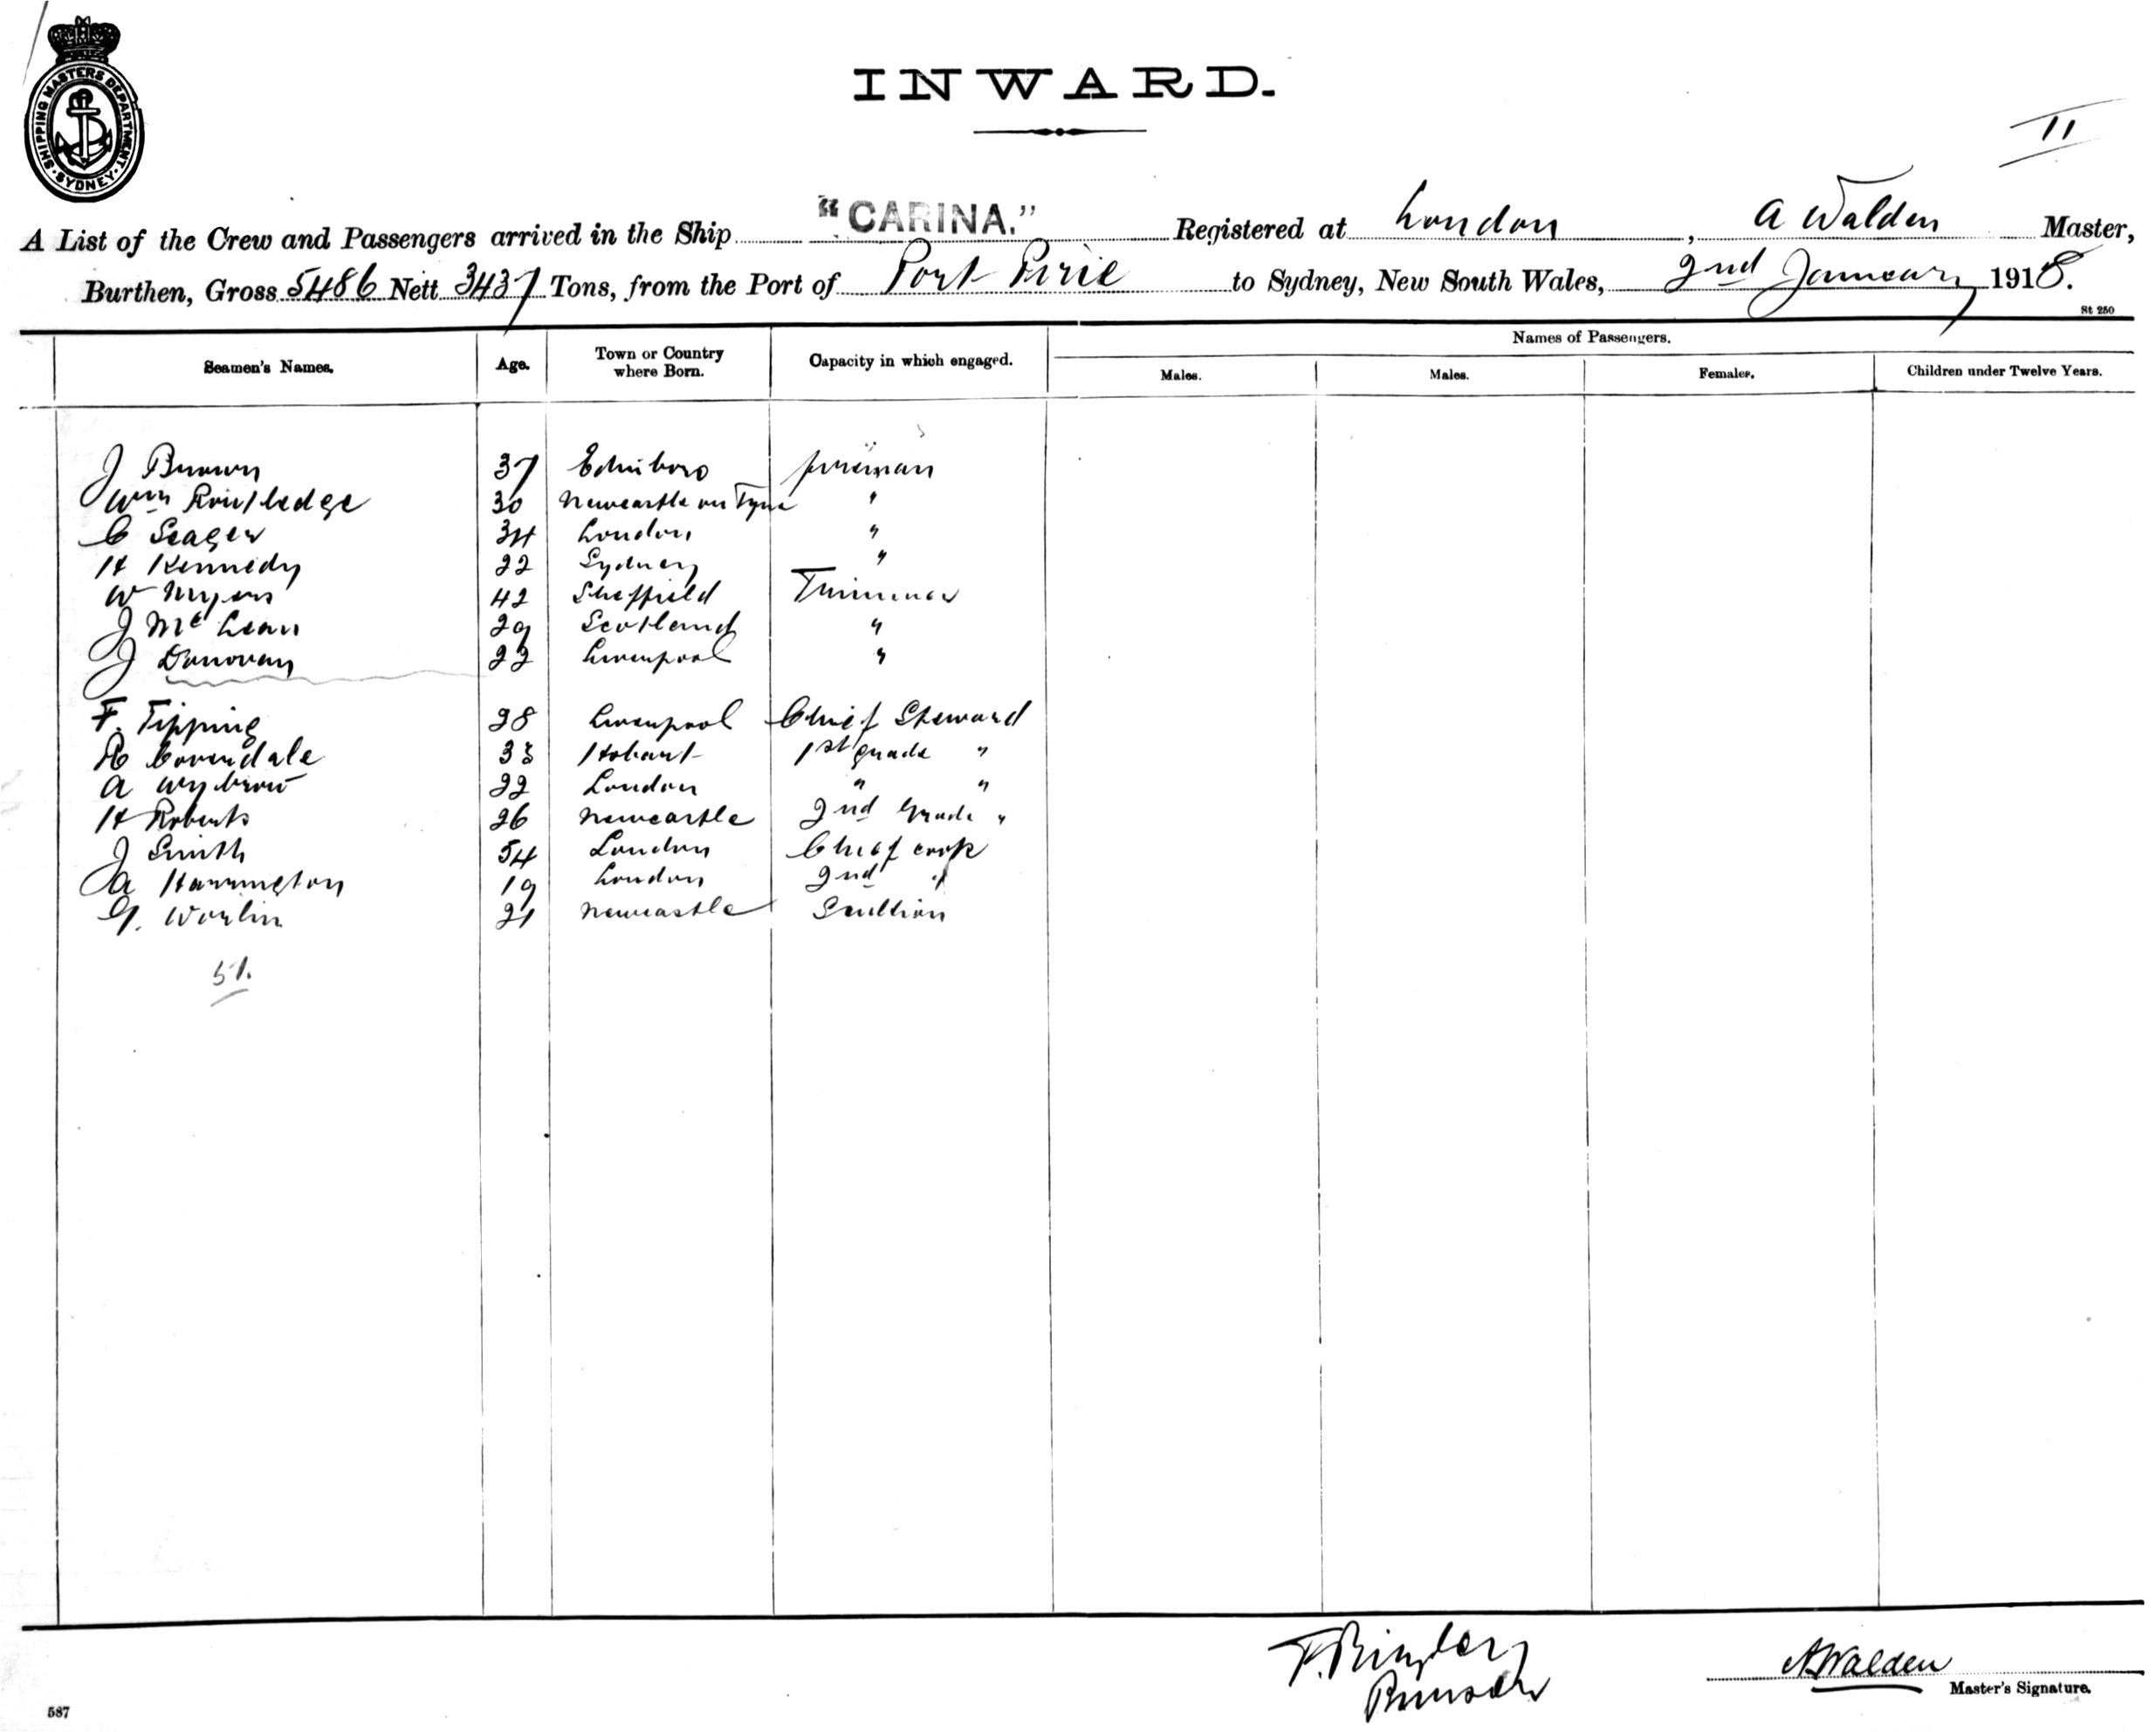 SHIPPING MASTERS DEPARTMENT · SYDNEY ·
INWARD.
11
A List of the Crew and Passengers arrived in the Ship "CARINA." Registered at London, A Walden Master,
Burthen, Gross 5486 Nett 3437 Tons, from the Port of Port Pirie to Sydney, New South Wales, 2nd January 1918.
St 250
Names of Passengers.
Seamen's Names. Age. Town or Country where Born. Capacity in which engaged. Males. Males. Females. Children under Twelve Years.
J Brown 37 Edinboro fireman
Wm Routledge 30 Newcastle on Tyne "
C Seager 34 London "
H Kennedy 22 Sydney "
W Myers 42 Sheffield Trimmer
J McLean 29 Scotland "
J Donovan 22 Liverpool "
F. Tipping 28 Liverpool Chief Steward
R Coverdale 33 Hobart 1st grade "
A Wybrow 22 London " "
H Roberts 26 Newcastle 2nd Grade "
J Smith 54 London Chief cook
A Harrington 19 London 2nd "
G. Worlin 21 Newcastle Scullion
51.
A Walden
Master's Signature.
587